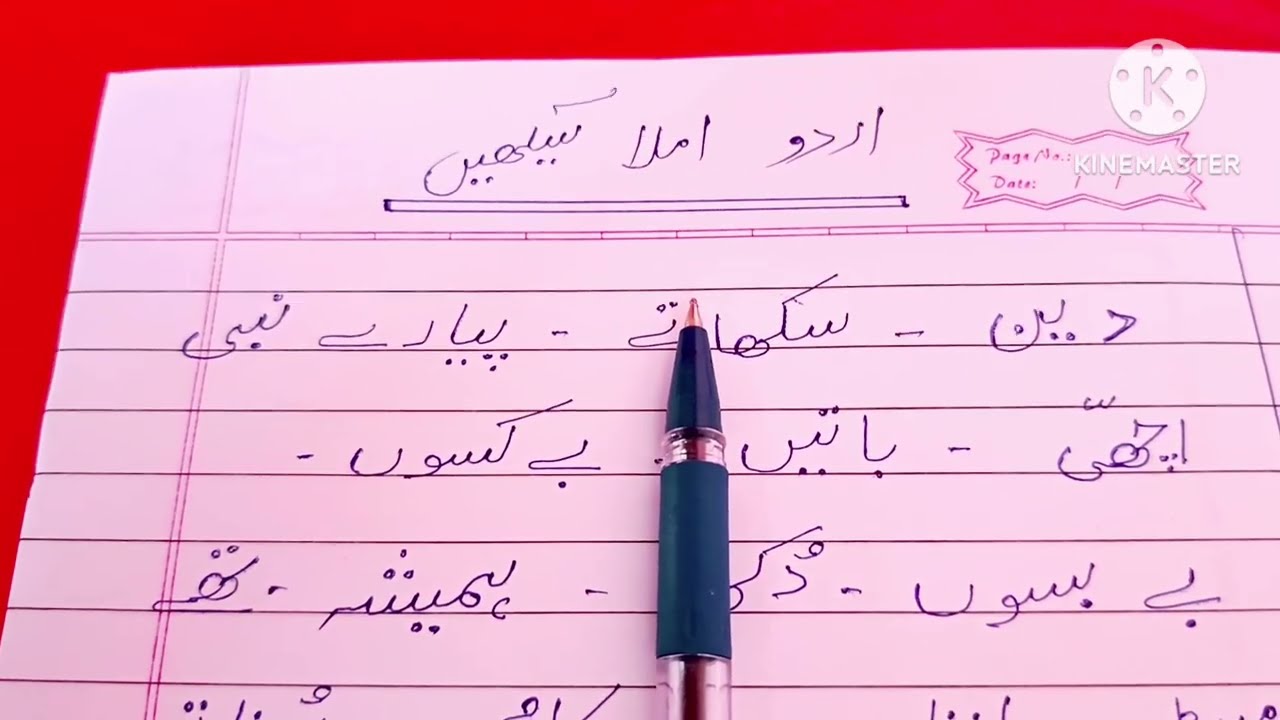 اردو املا سیکھیں
Page No.:
Date: / /
KINEMASTER
دین - سکھاتے - پیارے نبی
اچھّی - باتیں - بے کسوں -
بے بسوں - دُکھ - ہمیشہ - تھے